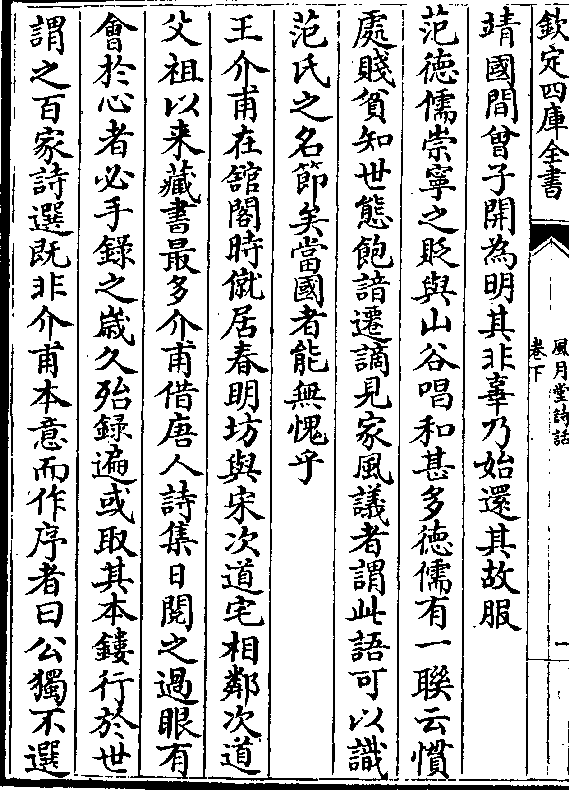 欽定四庫全書
風月堂詩話
卷下
靖國間曾子開為明其非辜乃始還其故服
范徳儒崇寧之貶與山谷唱和甚多徳儒有一聯云慣
處賤貧知世態飽諳遷謫見家風議者謂此語可以識
范氏之名節矣當國者能無愧乎
王介甫在舘閣時僦居春明坊與宋次道宅相鄰次道
父祖以来藏書最多介甫借唐人詩集日閱之過眼有
會於心者必手錄之嵗久殆録遍或取其本鏤行於世
謂之百家詩選既非介甫本意而作序者曰公獨不選